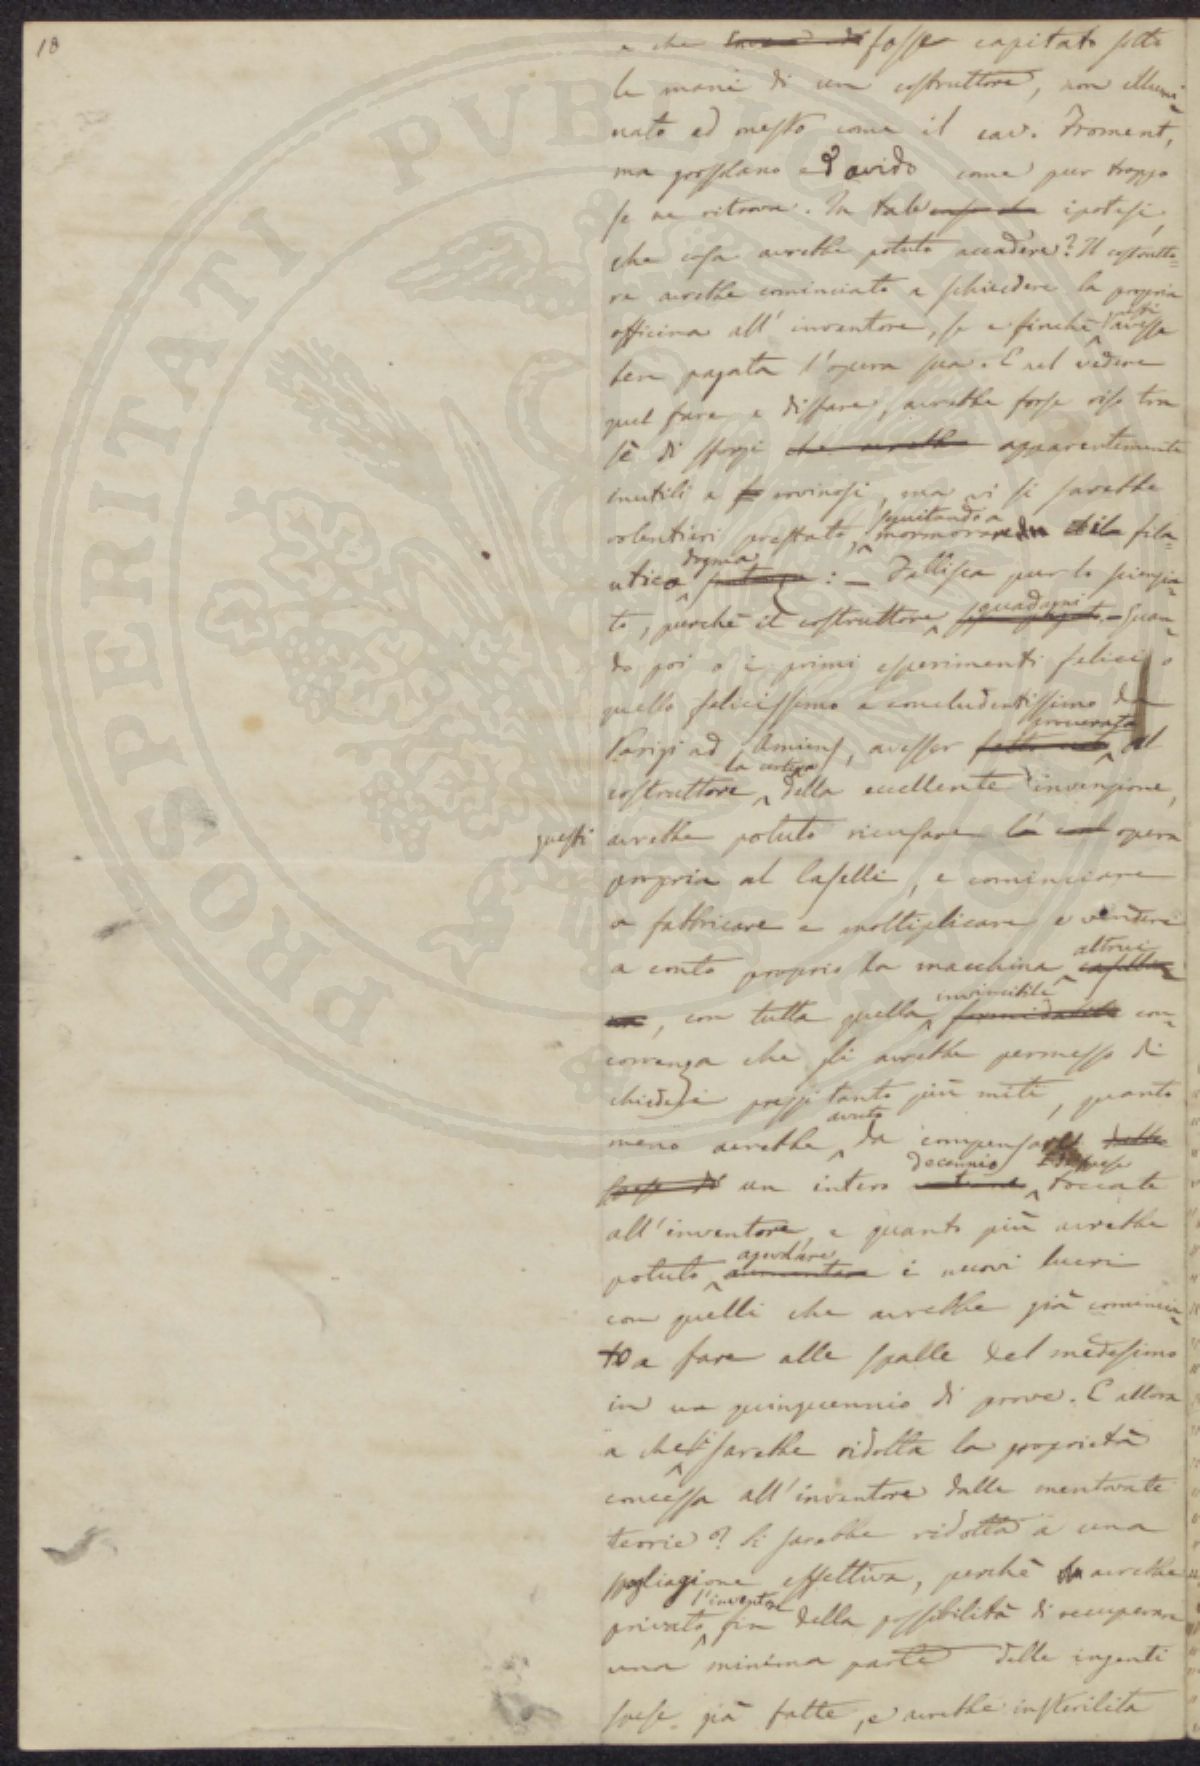 18
e che fosse capitato sotto
le mani di un costruttore, non illumi=
nato ed onesto come il cav. Froment,
ma grossolano ed avido come pur troppo
se ne ritrova. In tale caso che ipotesi,
che cosa avrebbe potuto accadere? Il costrutto=
re avrebbe cominciato a schiudere la propria
officina all' inventore, se e finchè questi avesse
ben pagata l'opera sua. E nel vedere
quel fare e disfare, avrebbe forse riso tra
sè di sforzi che avrebbe apparentemente
inutili e rovinosi, ma vi si sarebbe
seguitando a
volentieri prestato, mormorare il fila=
dogma
utico : — Fallisca pur lo scienzia=
guadagni
to, perchè il costruttore . — Quan=
do poi o i primi esperimenti felici o
quello felicissimo e concludentissimo da
procurata
Parigi ad Amiens, avesser al
la certezza
costruttore della eccellente invenzione,
questi avrebbe potuto ricusare l' opera
propria al Caselli, e cominciare
a fabbricare e moltiplicare e vendere
altrui
a conto proprio la macchina caselliа=
na, con tutta quella
invincibile
formidabile con=
correnza che gli avrebbe permesso di
chiedere prezzi tanto più miti, quanto
avuto
meno avrebbe da compensare delle
decennio di spese
spese di un intero toccate
all'inventore, e quanto più avrebbe
agevolare
potuto aumentare i nuovi lucri
con quelli che avrebbe già comincia=
to a fare alle spalle del medesimo
in un quinquennio di prove. E allora
a che si sarebbe ridotta la proprietà
concessa all'inventore dalle mentovate
teorie? Si sarebbe ridotta a una
spogliazione effettiva, perchè avrebbe
l'inventore
privato fin della possibilità di recuperare
una minima parte delle ingenti
spese già fatte, e avrebbe insterilita
PROSPERITATI PVBLICAE